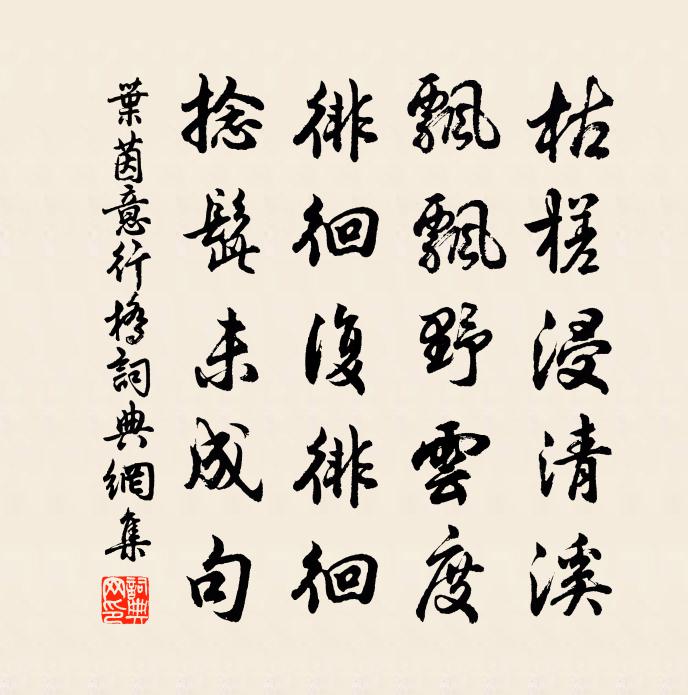 枯槎浸清溪
飄飄野雲度
徘徊復徘徊
捻髭未成句
葉茵意行橋詞典網集
詞典網印